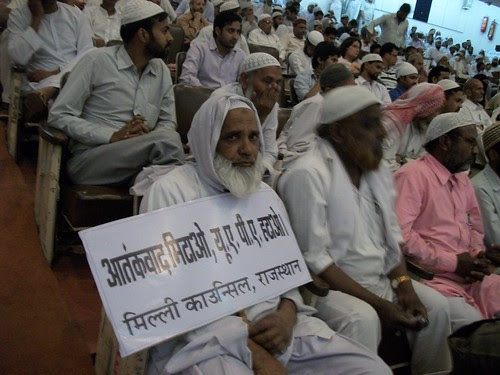 आतंकवाद मिटाओ, यू. ए. पी. ए. हटाओ!
मिल्ली काउन्सिल, राजस्थान